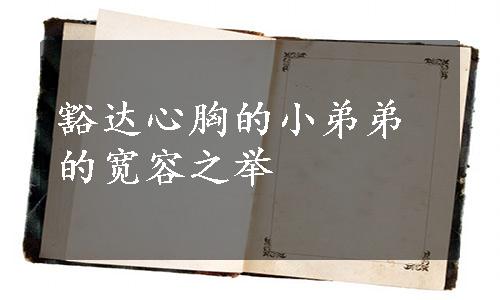 豁达心胸的小弟弟
的宽容之举